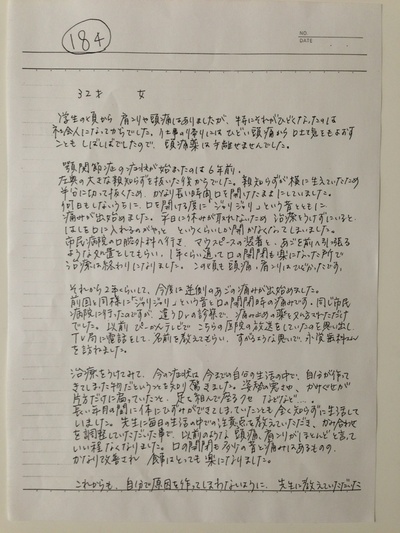 184
NO.
DATE
32才 女
学生の頃から肩こりや頭痛はありましたが、特にそれがひどくなったのは
社会人になってからでした。仕事の帰りにはひどい頭痛から吐き気をもよおす
こともしばしばでしたので、頭痛薬は手離せませんでした。
顎関節症の症状が始まったのは6年前。
左奥の大きな親知らずを抜いた後からでした。親知らずが横に生えていたため
半分に切って抜くため、かなり長い時間口を開けたままにしていました。
何日もしないうちに、口を開ける度に「ジャリジャリ」という音とともに
痛みが出始めました。平日に休みが取れないため治療をうけずにいると、
はしを口に入れるのがやっと、というくらいしか開かなくなってしまいました。
市民病院の口腔外科へ行き、マウスピースの装着と、あごを前へ引っ張る
ような処置をしてもらい、1年くらい通って口の開閉も楽になった所で
治療は終わりになりました。この頃も頭痛、肩こりはひどかったです。
それから2年くらいして、今度は逆側のあごの痛みが出始めました。
前回と同様に「ジャリジャリ」という音と口の開閉時の痛みです。同じ市民
病院に行ったのですが、違うDrの診察で、痛み止めの薬を処方されただけ
でした。以前ぴーかんテレビで こちらの医院の放送をしていたのを思い出し、
TV局に電話をして、名前を教えてもらい、すがるような思いで、永資歯科さん
を訪ねました。
治療をうけてみて、今の症状は今までの自分の生活の中で、自分が作っ
てきてしまった物だということを知り驚きました。姿勢の悪さや、かみぐせが
片方だけに偏っていたこと、足を組んで座るクセなどなど…。
長い年月の間に体にひずみができてしまっていたことも全く知らずに生活して
いました。先生に毎日の生活の中での注意点を教えていただき、かみ合わせ
を調整していただいた事で、以前のような頭痛、肩こりがほとんどと言って
いい程なくなりました。口の開閉も多少の音と痛みはあるものの、
かなり改善され 食事はとっても楽になりました。
これからも、自分で原因を作ってしまわないように、先生に教えていただいた